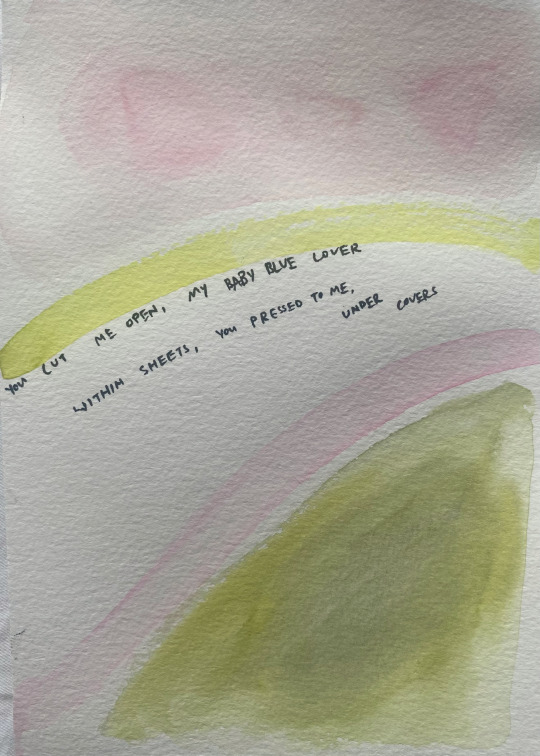 YOU CUT ME OPEN, MY BABY BLUE LOVER
WITHIN SHEETS, YOU PRESSED TO ME,
UNDER COVERS